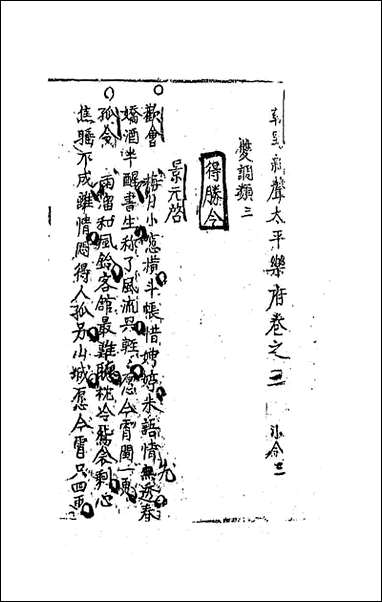 朝野新聲太平樂府卷之三 小令三
雙調類三
得勝令
景元啓
歡會 梅月小窻橫斗帳惜娉婷未語情先透春
嬌酒半醒書生称了風流興輕輕愿今宵閏一更
孤令 雨溜和風鈴客館最難聽枕冷鴛衾剩心
焦睡不成離情悶得人孤另山城愿今宵只四更